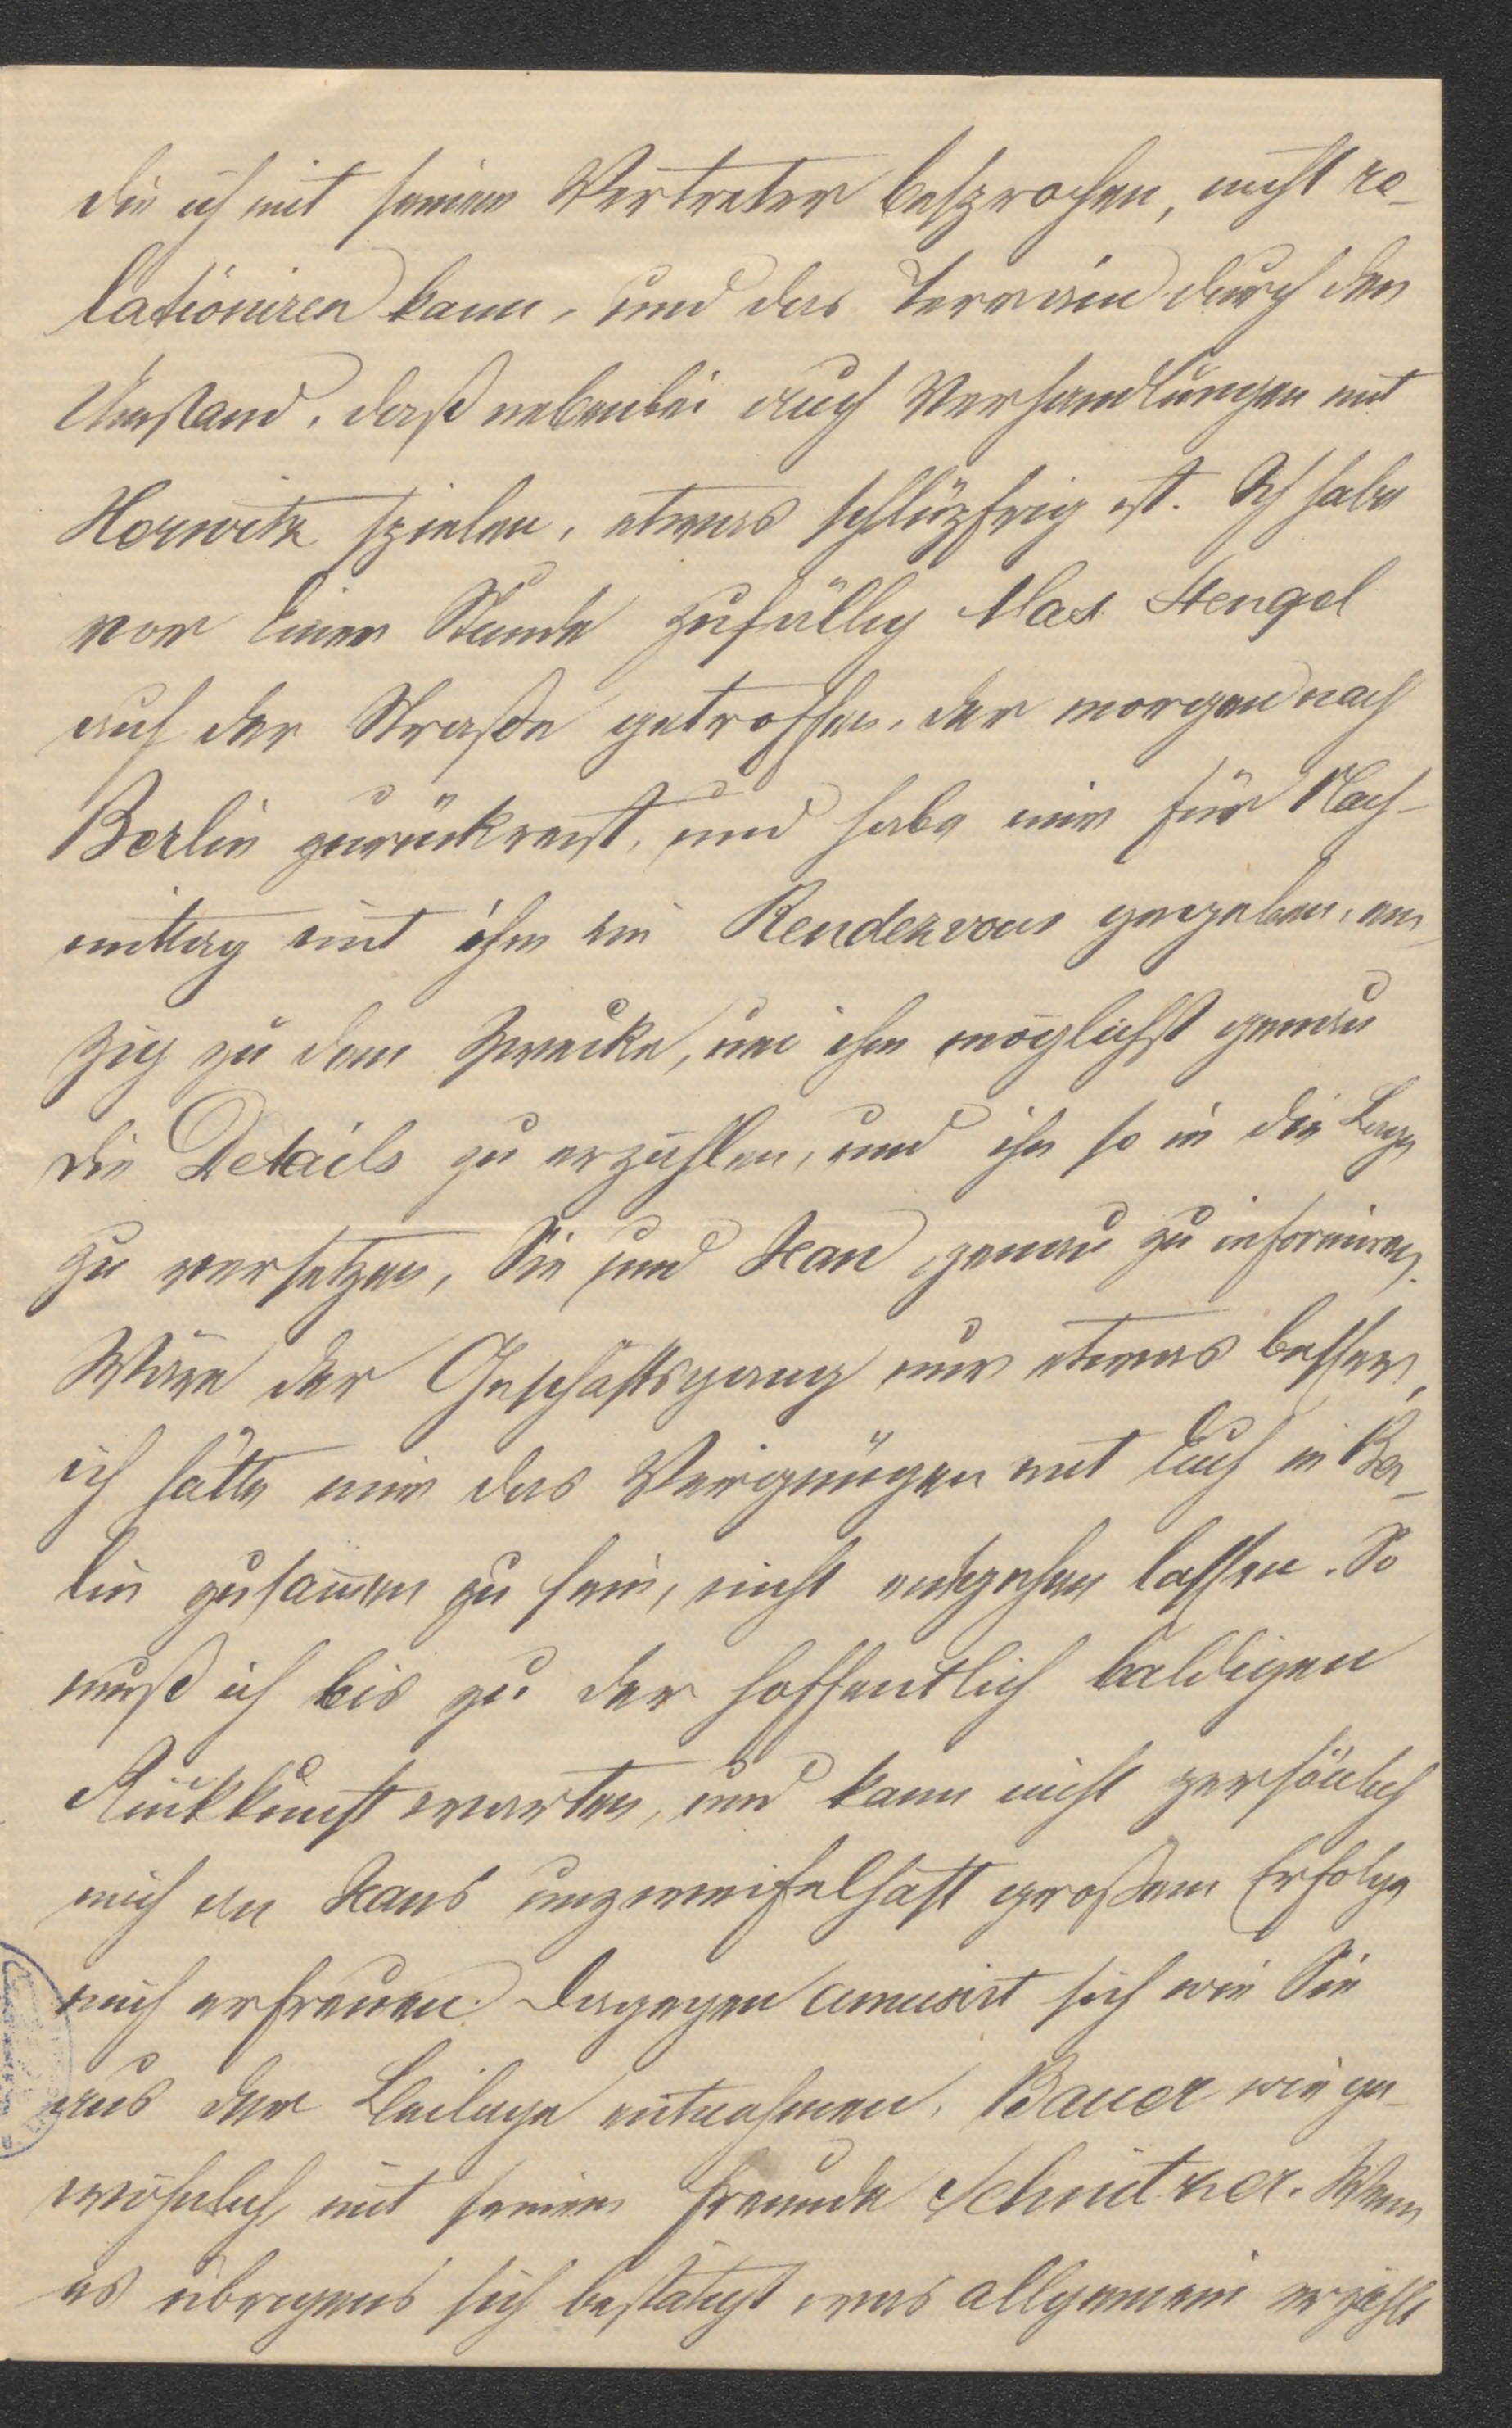 die ich mit seinem Vertreter besprochen, nicht re-
lationiren kann, und das Terrain durch den
Umstand, daß nebenbei auch Verhandlungen mit
Horwitz spielen, etwas schlüpfrig ist. Ich habe
vor einer Stunde zufällig Max Stengel
auf der Straße getroffen, der morgen nach
Berlin zurückreist, und habe mir für Nach-
mittag mit ihm ein Rendezvous gegeben, ein
zig zu dem Zwecke, um ihm möglichst genau
die Details zu erzählen, und ihn so in die Lage
zu versetzen, Sie und Jean genau zu informiren.
Wäre der Geschäftsgang nur etwas besser,
ich hätte mir das Vergnügen mit Euch in Ber-
lin zusammen zu sein, nicht entgehen lassen. So
muß ich bis zu der hoffentlich baldigen
Rückkunft warten, und kann nicht persönlich
mich an Jeans unzweifelhaft großem Erfolge
mich erfreuen. Dagegen amusirt sich wie Sie
aus der Beilage entnehmen, Bauer wie ge-
wöhnlich mit seinem Freunde Schnitzer. Wenn
es übrigens sich bestätigt was allgemein erzählt